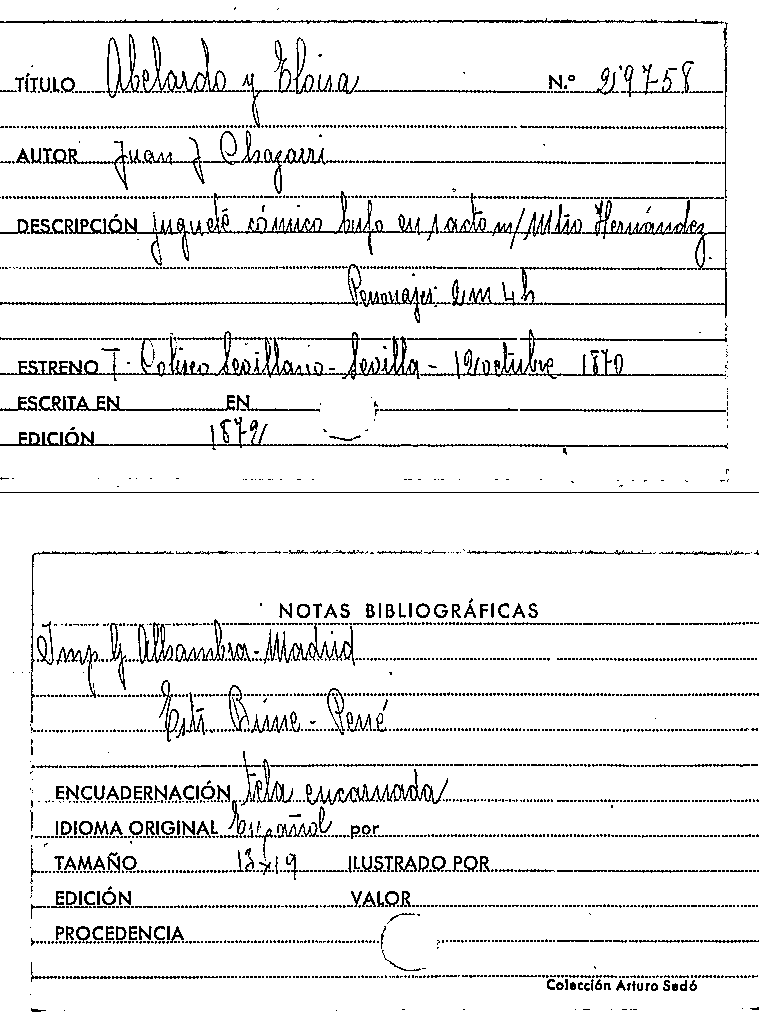 TÍTULO Abelardo y Eloisa N.º 29758
AUTOR Juan J Chazarri
DESCRIPCIÓN juguete cómico bufo en 1 acto m/ Mtro Hernández.
Personajes: 2 m 4 h
ESTRENO T. Coliseo Sevillano - Sevilla - 12 octubre 1870
ESCRITA EN EN
EDICIÓN 1872
NOTAS BIBLIOGRÁFICAS
Imp. y Alhambra - Madrid
Estr. - René
ENCUADERNACIÓN tela encarnada
IDIOMA ORIGINAL Español por
TAMAÑO 13x19 ILUSTRADO POR
EDICIÓN VALOR
PROCEDENCIA
Colección Arturo Sedó